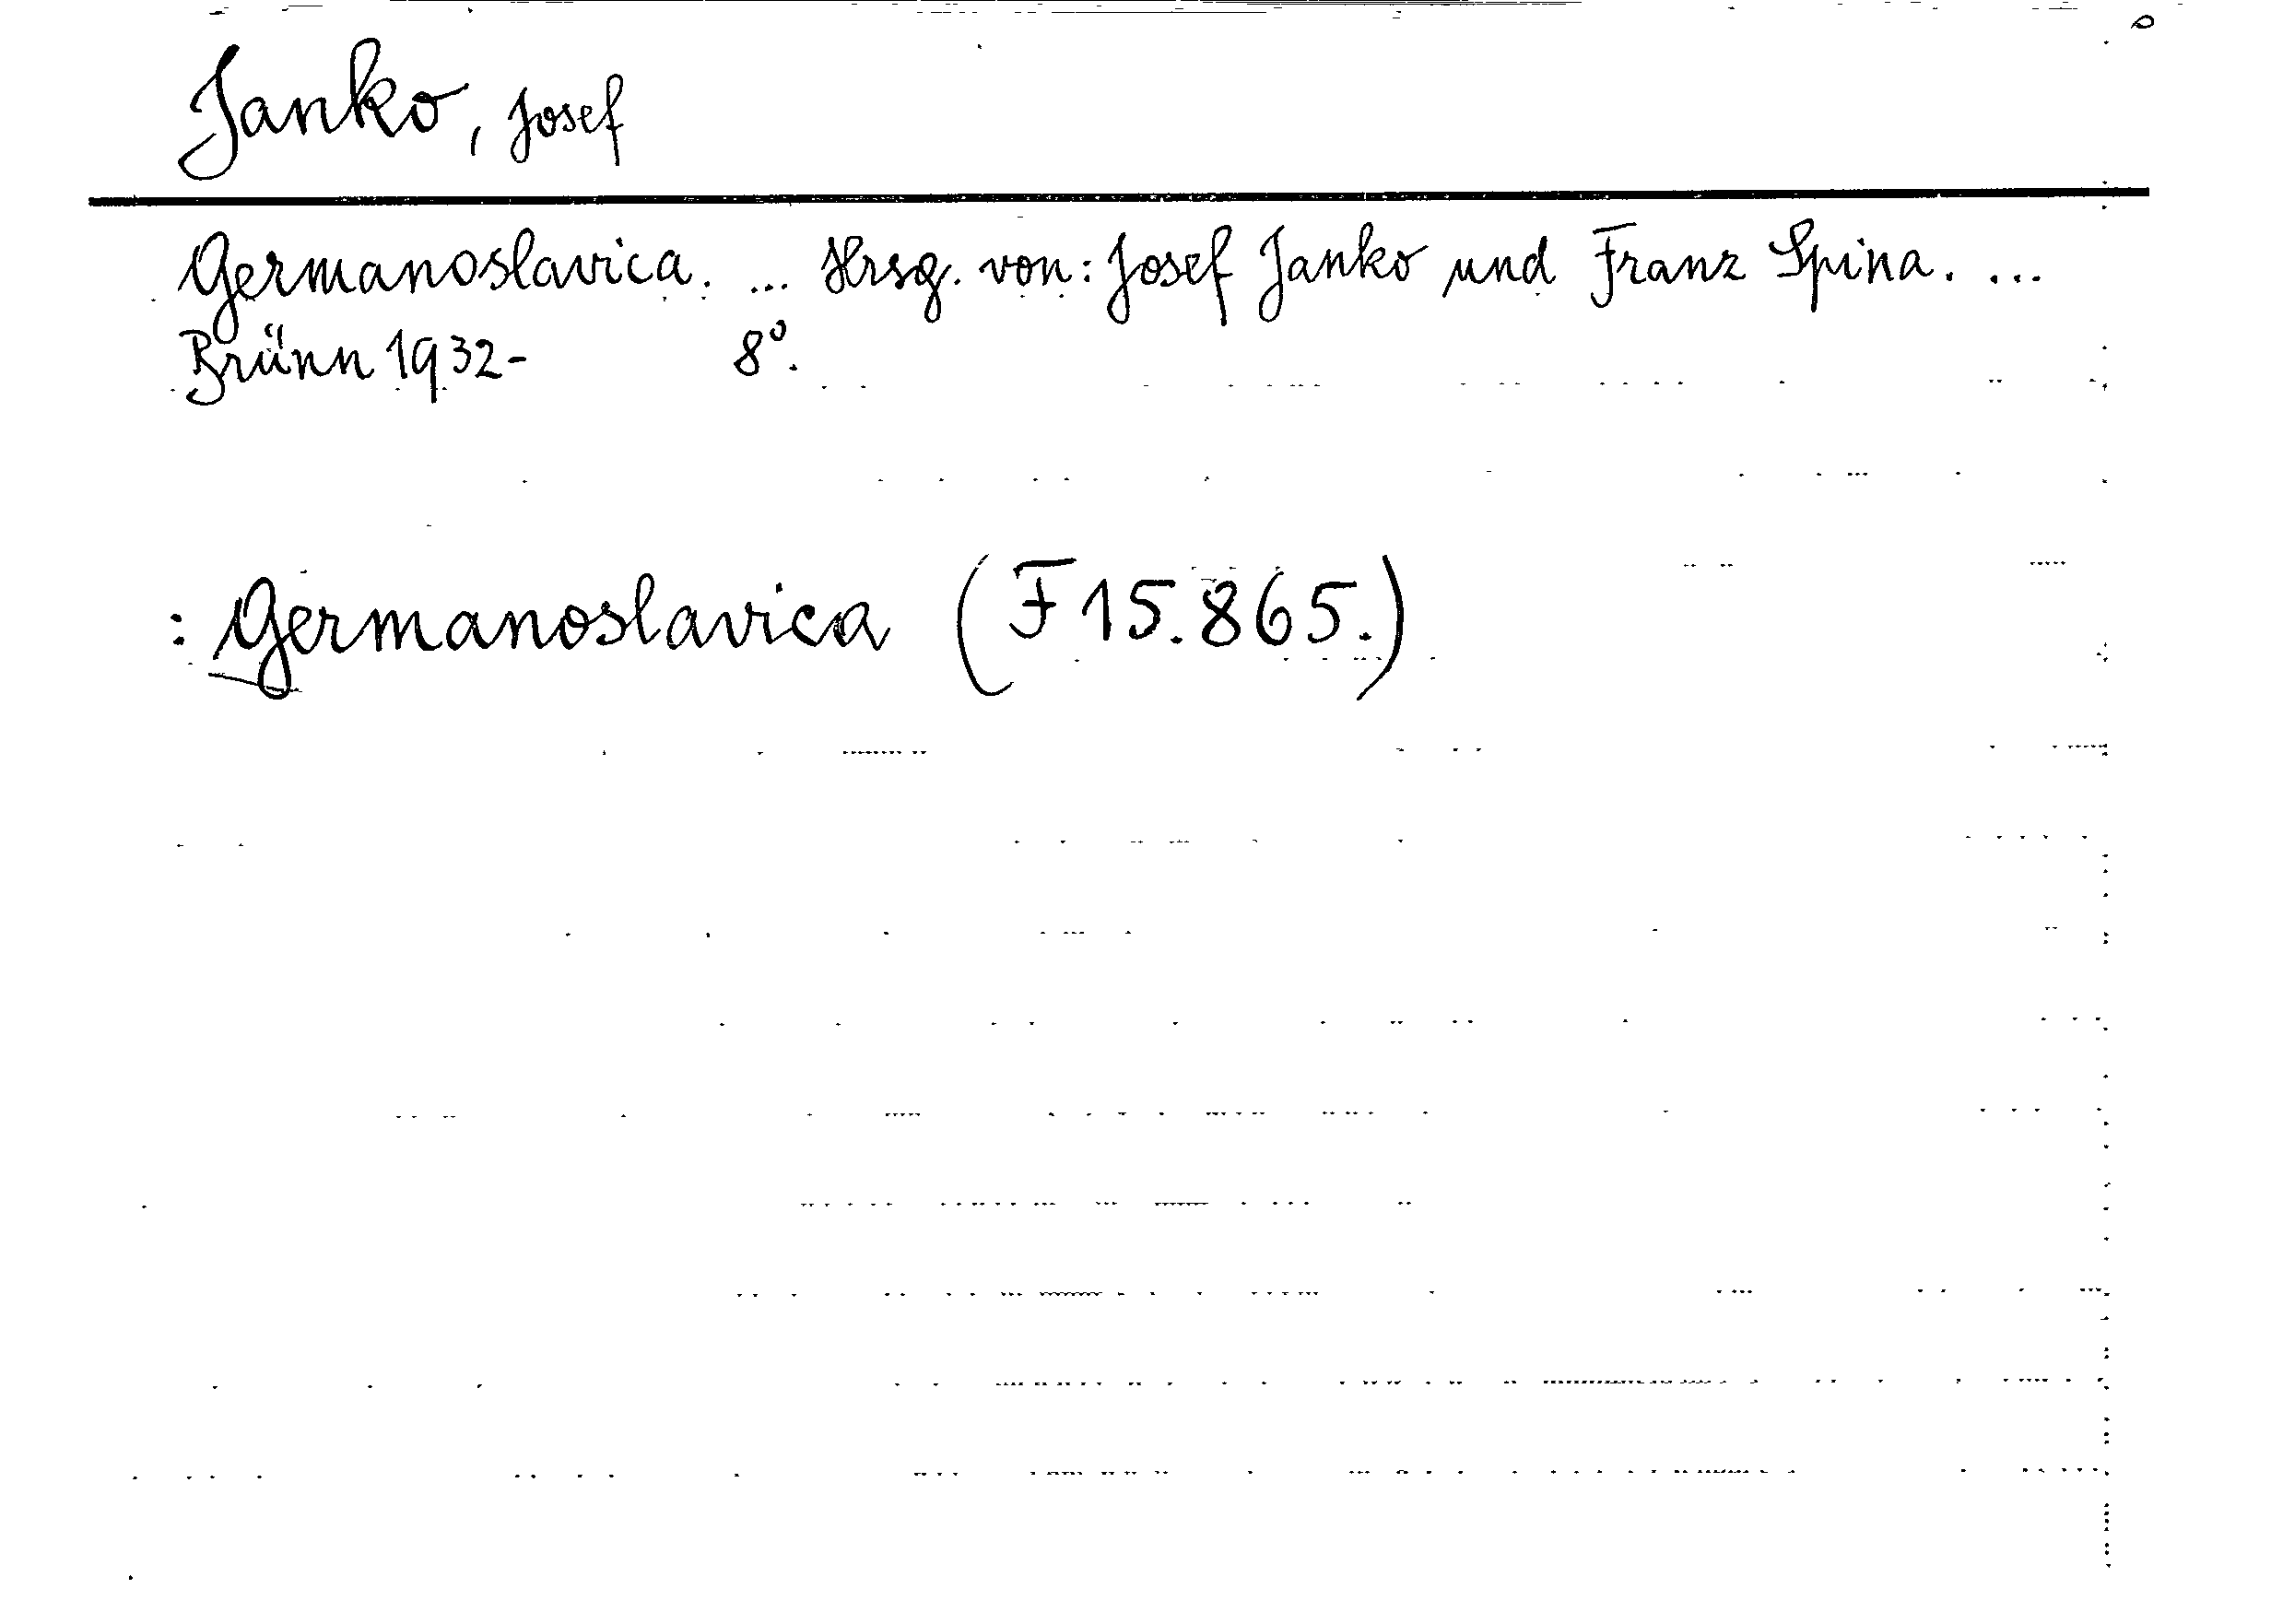 Janko, Josef
Germanoslavica. ... Hrsg. von: Josef Janko und Franz Spina. ...
Brünn 1932- 8°.
: Germanoslavica (F 15.865.)